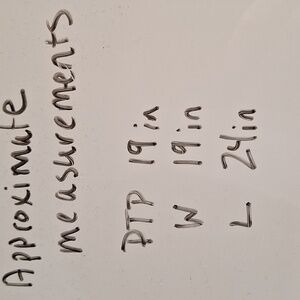 Approximate
measurements
PTP 19in
W 19in
L 24in